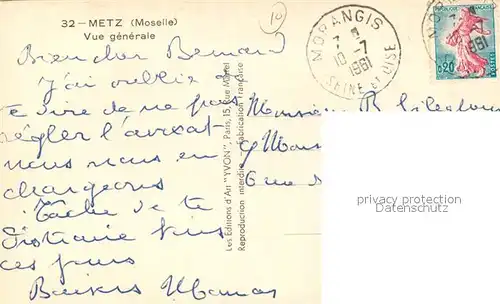 32 - METZ (Moselle)
Vue générale
Bien cher Bernard
J'ai oublié de
te dire de ne pas
régler l'avocat
nous nous en
chargeons
Tâche de te
ces jours
Baisers Maman
Monsieur
Les Editions d'Art "YVON", Paris, 15, Rue Martel
Reproduction interdite Fabrication Française
MORANGIS
7 H
10-7
1961
SEINE ET OISE
0,20
POSTES
privacy protection
Datenschutz